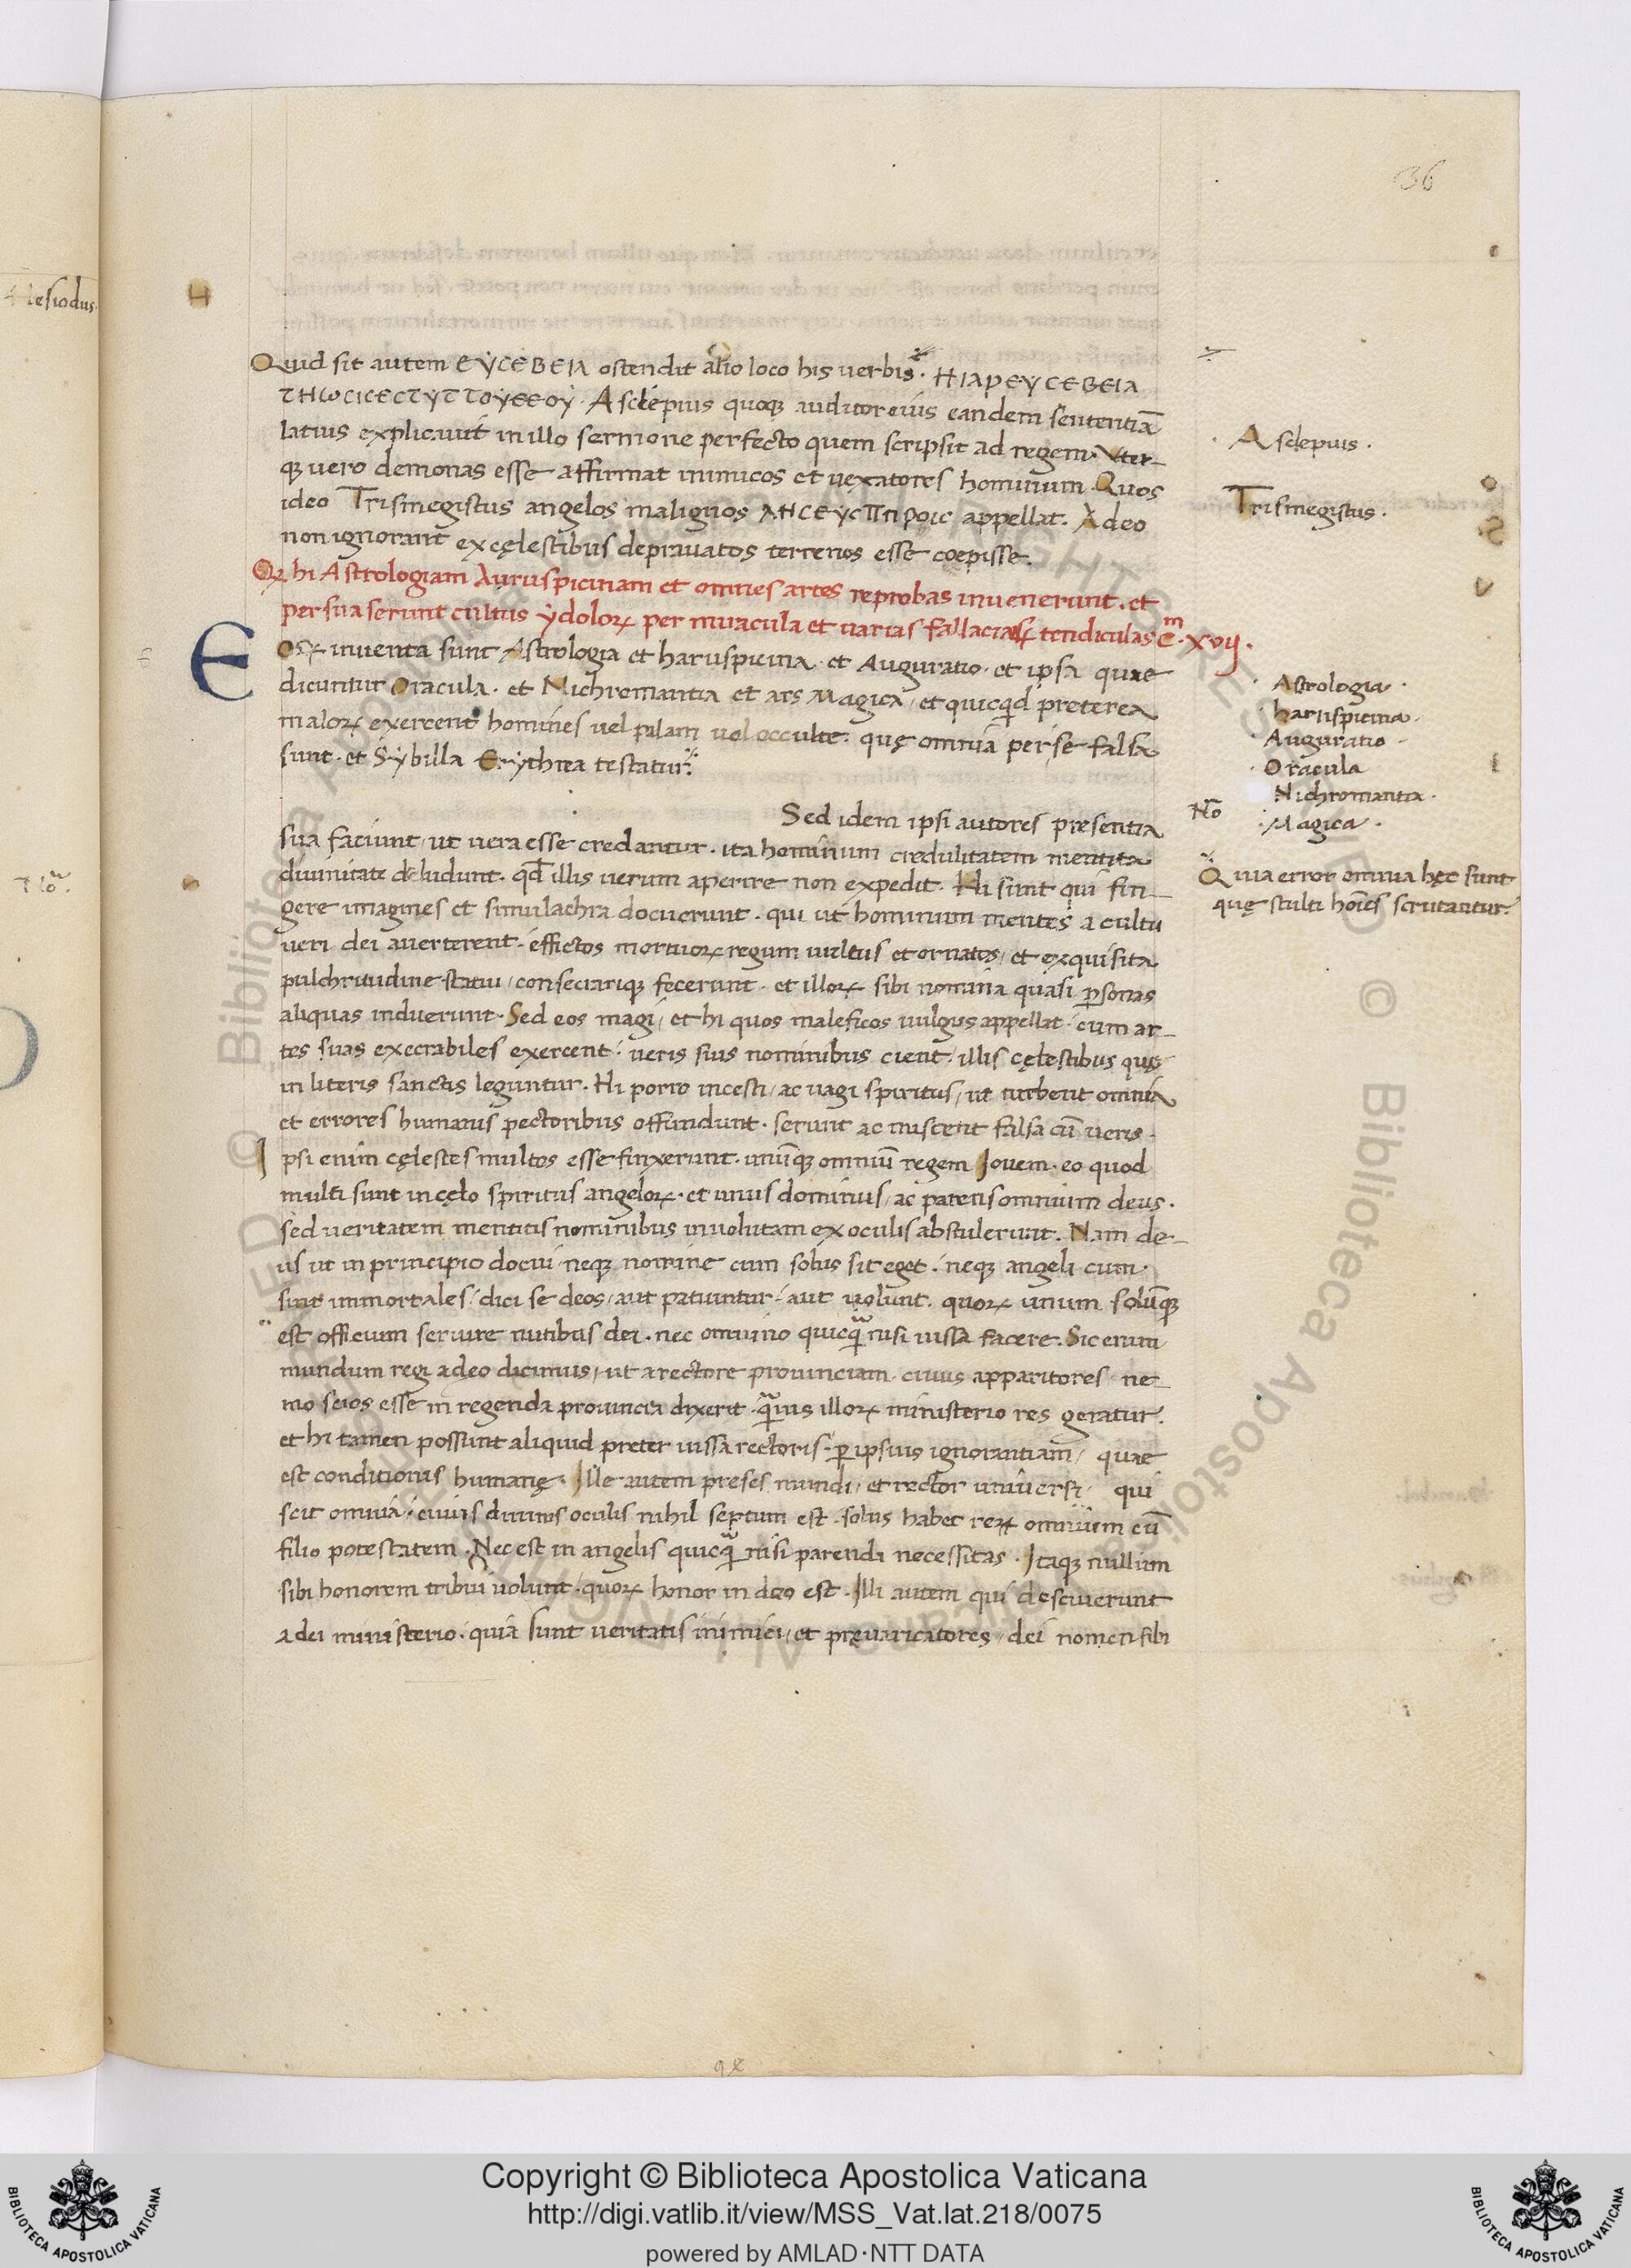 36
Hesiodus.
Quid sit autem ЄΥCЄBЄIA ostendit alio loco his verbis. HΓAPЄΥCЄBЄIA
ΤHωCICЄCTΥΤTOΥΘЄOΥ. Asclepius quoq; auditor eius eandem sententiā
latius explicavit in illo sermone perfecto quem scripsit ad regem. Uter-
q; vero demonas esse affirmat inimicos et vexatores hominum. Quos
ideo Trismegistus angelos malignos appellat. Adeo
non ignorant ex cęlestibus depravatos terrenos esse coepisse.
Qꝫ hi Astrologiam Auruspicinam et omnes artes reprobas invenerunt. et
persuaserunt cultus ydoloꝝ per miracula et varias fallaciaꝝ tendiculas C.m XVII.
Eoꝝ inventa sunt Astrologia et haruspicina. et Auguratio. et ipsa quae
dicuntur Oracula. et Nichromantia et ars Magica, et quicq̇d preterea
maloꝝ exercent homines vel palam vel occulte. quę omnia per se falsa
sunt. et Sybilla Erythrea testatur.
Sed idem ipsi autores presentia
sua faciunt, ut vera esse credantur. ita hominum credulitatem mentita
divinitate deludunt. qd̄ illis verum aperire non expedit. Hi sunt qui fin-
gere imagines et simulachra docuerunt. qui ut hominum mentes a cultu
veri dei averterent. effictos mortuoꝝ regum vultus et ornatos, et exquisita
pulchritudine statui, consecrariq; fecerunt. et illoꝝ sibi nomina quasi ꝑsonas
aliquas induerunt. Sed eos magi, et hi quos maleficos vulgus appellat. cum ar-
tes suas execrabiles exercent. veris suis nominibus cient, illis cęlestibus quę
in literis sanctis leguntur. Hi porro incesti, ac vagi spiritus, ut turbent omnia
et errores humanis pectoribus offundunt. serunt ac miscent falsa cū veris.
Ipsi enim cęlestes multos esse finxerunt. unūq; omniū regem Jovem. eo quod
multi sunt in cęlo spiritus angeloꝝ. et unus dominus, ac parens omnium deus.
sed veritatem mentitis nominibus involutam ex oculis abstulerunt. Nam de-
us ut in principio docui neq; nomine cum solus sit eget. neq; angeli cum
sint immortales, dici se deos, aut patiuntur, aut volunt. quoꝝ unum solūq;
est officium servire nutibus dei. nec omnino quicq̄ nisi iussa facere. Sic enim
mundum regi adeo dicimus, ut a rectore provinciam. cuius apparitores ne-
mo socios esse in regenda provincia dixerit. q̄vis illoꝝ ministerio res geratur.
et hi tamen possunt aliquid preter iussa rectoris. ꝑ ipsius ignorantiam, quae
est conditionis humanę. Ille autem preses mundi, et rector universi, qui
scit omnia. cuius divinis oculis nihil septum est. solus habet reꝝ omnium cū
filio potestatem. Nec est in angelis quicq̄ nisi parendi necessitas. Itaq; nullum
sibi honorem tribui volunt. quoꝝ honor in deo est. Illi autem qui desciverunt
a dei ministerio. quia sunt veritatis inimici, et prevaricatores, dei nomen sibi
Asclepius.
Trismegistus.
Astrologia.
haruspicina.
Auguratio.
Oracula
Nichromantia.
Nō
Magica.
Quia error omnia hęc sunt
quę stulti hoīes scrutantur.
Copyright © Biblioteca Apostolica Vaticana
http://digi.vatlib.it/view/MSS_Vat.lat.218/0075
powered by AMLAD·NTT DATA
BIBLIOTECA APOSTOLICA VATICANA
BIBLIOTECA APOSTOLICA VATICANA